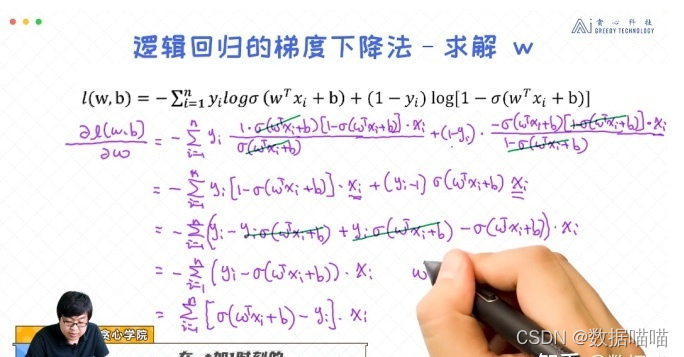 贪心科技
GREEDY TECHNOLOGY
逻辑回归的梯度下降法 – 求解 w
l(w, b) = −∑ᵢ₌₁ⁿ yᵢlogσ (wᵀxᵢ + b) + (1 − yᵢ) log[1 − σ(wᵀxᵢ + b)]
∂l(w.b)/∂w = −∑ᵢ₌₁ⁿ yᵢ (1·σ(wᵀxᵢ+b)[1−σ(wᵀxᵢ+b)]·xᵢ)/(σ(wᵀxᵢ+b)) + (1−yᵢ)· (−σ(wᵀxᵢ+b)[1−σ(wᵀxᵢ+b)]·xᵢ)/(1−σ(wᵀxᵢ+b))
= −∑ᵢ₌₁ⁿ yᵢ[1−σ(wᵀxᵢ+b)]·xᵢ + (yᵢ−1) σ(wᵀxᵢ+b) xᵢ
= −∑ᵢ₌₁ⁿ (yᵢ − yᵢσ(wᵀxᵢ+b) + yᵢσ(wᵀxᵢ+b) − σ(wᵀxᵢ+b))·xᵢ
= −∑ᵢ₌₁ⁿ (yᵢ−σ(wᵀxᵢ+b))·xᵢ w
= ∑ᵢ₌₁ⁿ [σ(wᵀxᵢ+b)−yᵢ]·xᵢ
贪心学院
CSDN @数据喵喵